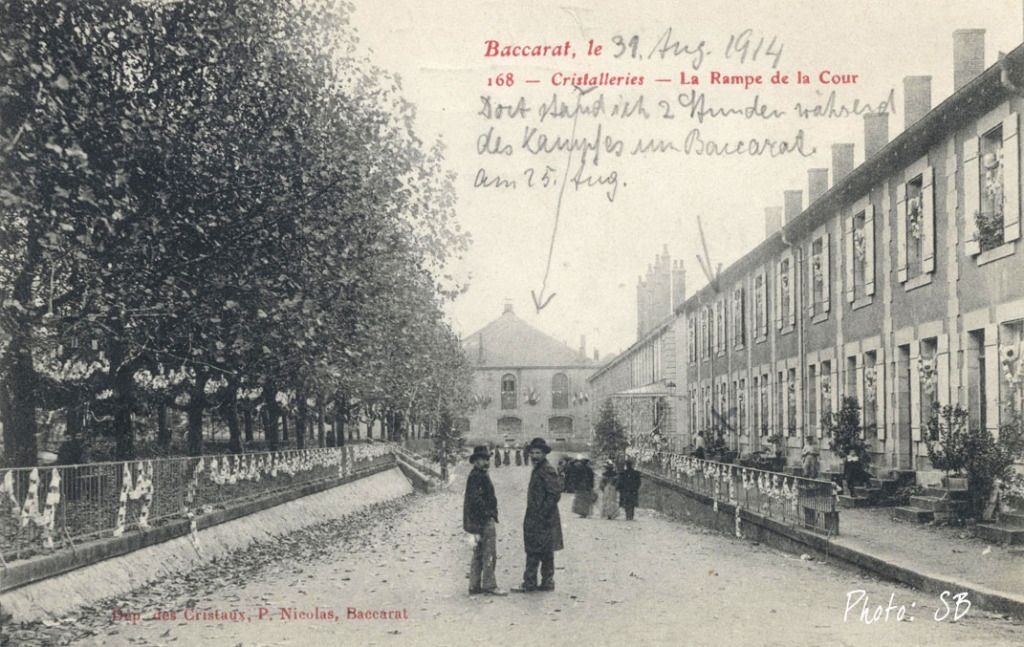 Baccarat, le 31. Aug. 1914
168 — Cristalleries — La Rampe de la Cour
Dort stand ich 2 Stunden während
des Kampfes um Baccarat.
am 25. Aug.
Dép. des Cristaux, P. Nicolas, Baccarat
Photo: SB